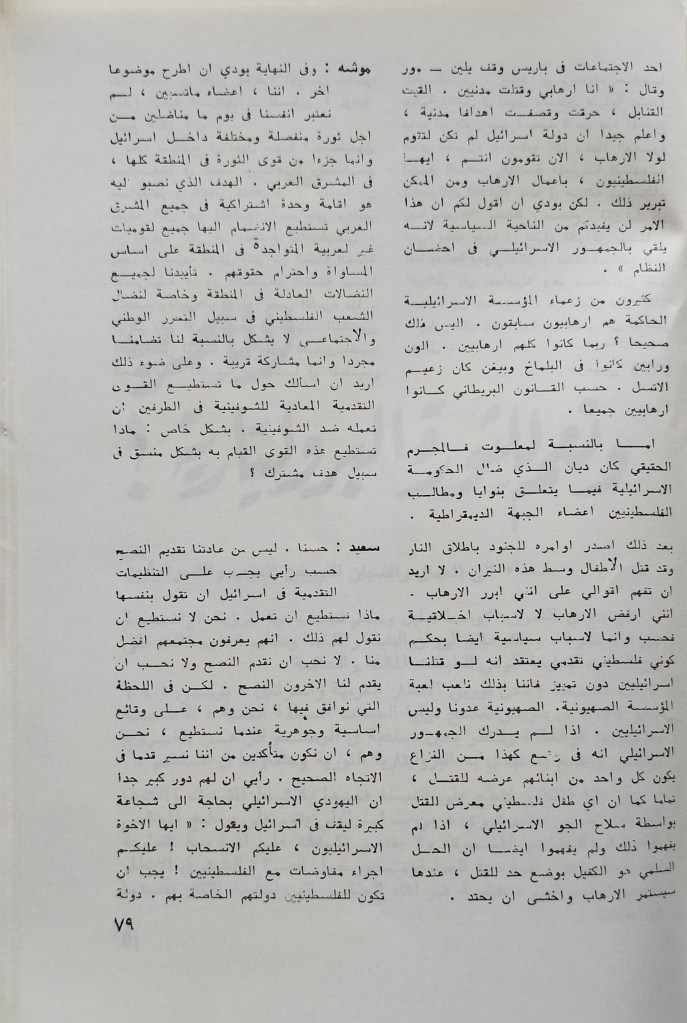 احد الاجتماعات فى باريس وقف يلين — مور
وقال : « انا ارهابي وقتلت مدنيين . القيت
القنابل ، حرقت وقصفت اهدافا مدنية ،
واعلم جيدا ان دولة اسرائيل لم تكن لتقوم
لولا الارهاب ، الان تقومون انتم ، ايها
الفلسطينيون ، باعمال الارهاب ومن الممكن
تبرير ذلك . لكن بودي ان اقول لكم ان هذا
الامر لن يفيدكم من الناحية السياسية لانه
يلقي بالجمهور الاسرائيلي فى احضان
النظام » .
كثيرون من زعماء المؤسسة الاسرائيلية
الحاكمة هم ارهابيون سابقون . اليس ذلك
صحيحا ؟ ربما كانوا كلهم ارهابيين . الون
ورابين كانوا فى البلماخ وبيغن كان زعيم
الاتسل . حسب القانون البريطاني كانوا
ارهابيين جميعا .
اما بالنسبة لمعلوت فالمجرم
الحقيقي كان ديان الذي ضلل الحكومة
الاسرائيلية فيما يتعلق بنوايا ومطالب
الفلسطينيين اعضاء الجبهة الديمقراطية .
بعد ذلك اصدر اوامره للجنود باطلاق النار
وقد قتل الأطفال وسط هذه النيران . لا اريد
ان تفهم اقوالي على انني ابرر الارهاب .
انني ارفض الارهاب لا لاسباب اخلاقية
فحسب وانما لاسباب سياسية ايضا بحكم
كوني فلسطيني تقدمي يعتقد انه لو قتلنا
اسرائيليين دون تمييز فاننا بذلك نلعب لعبة
المؤسسة الصهيونية. الصهيونية عدونا وليس
الاسرائيليين . اذا لم يدرك الجمهور
الاسرائيلي انه فى وضع كهذا من النزاع
يكون كل واحد من ابنائهم عرضه للقتل ،
تماما كما ان اي طفل فلسطيني معرض للقتل
بواسطة سلاح الجو الاسرائيلي ، اذا لم
يفهموا ذلك ولم يفهموا ايضا ان الحل
السلمي هو الكفيل بوضع حد للقتل ، عندها
سيستمر الارهاب واخشى ان يحتد .
موشه : وفى النهاية بودي ان اطرح موضوعا
اخر . اننا ، اعضاء ماتسبين ، لم
نعتبر انفسنا فى يوم ما مناضلين من
اجل ثورة منفصلة ومختلفة داخل اسرائيل
وانما جزءا من قوى الثورة فى المنطقة كلها ،
فى المشرق العربي . الهدف الذي نصبو اليه
هو اقامة وحدة اشتراكية فى جميع المشرق
العربي تستطيع الانضمام اليها جميع لقوميات
غير لعربية المتواجدة فى المنطقة على اساس
المساواة واحترام حقوقهم . تأييدنا لجميع
النضالات العادلة فى المنطقة وخاصة لنضال
الشعب الفلسطيني فى سبيل التحرر الوطني
والاجتماعي لا يشكل بالنسبة لنا تضامنا
مجردا وانما مشاركة قريبة . وعلى ضوء ذلك
اريد ان اسألك حول ما تستطيع القوى
التقدمية المعادية للشوفينية فى الطرفين ان
تعمله ضد الشوفينية . بشكل خاص : ماذا
تستطيع هذه القوى القيام به بشكل منسق فى
سبيل هدف مشترك ؟
سعيد : حسنا . ليس من عادتنا تقديم النصح
حسب رأيي يجب على التنظيمات
التقدمية فى اسرائيل ان تقول بنفسها
ماذا تستطيع ان تعمل . نحن لا نستطيع ان
نقول لهم ذلك . انهم يعرفون مجتمعهم افضل
منا . لا نحب ان نقدم النصح ولا نحب ان
يقدم لنا الاخرون النصح . لكن فى اللحظة
التي نوافق فيها ، نحن وهم ، على وقائع
اساسية وجوهرية عندما نستطيع ، نحن
وهم ، ان نكون متأكدين من اننا نسير قدما فى
الاتجاه الصحيح . رأيي ان لهم دور كبير جدا
ان اليهودي الاسرائيلي بحاجة الى شجاعة
كبيرة ليقف فى اسرائيل ويقول : « ايها الاخوة
الاسرائيليون ، عليكم الانسحاب ! عليكم
اجراء مفاوضات مع الفلسطينيين ! يجب ان
تكون للفلسطينيين دولتهم الخاصة بهم . دولة
٧٩